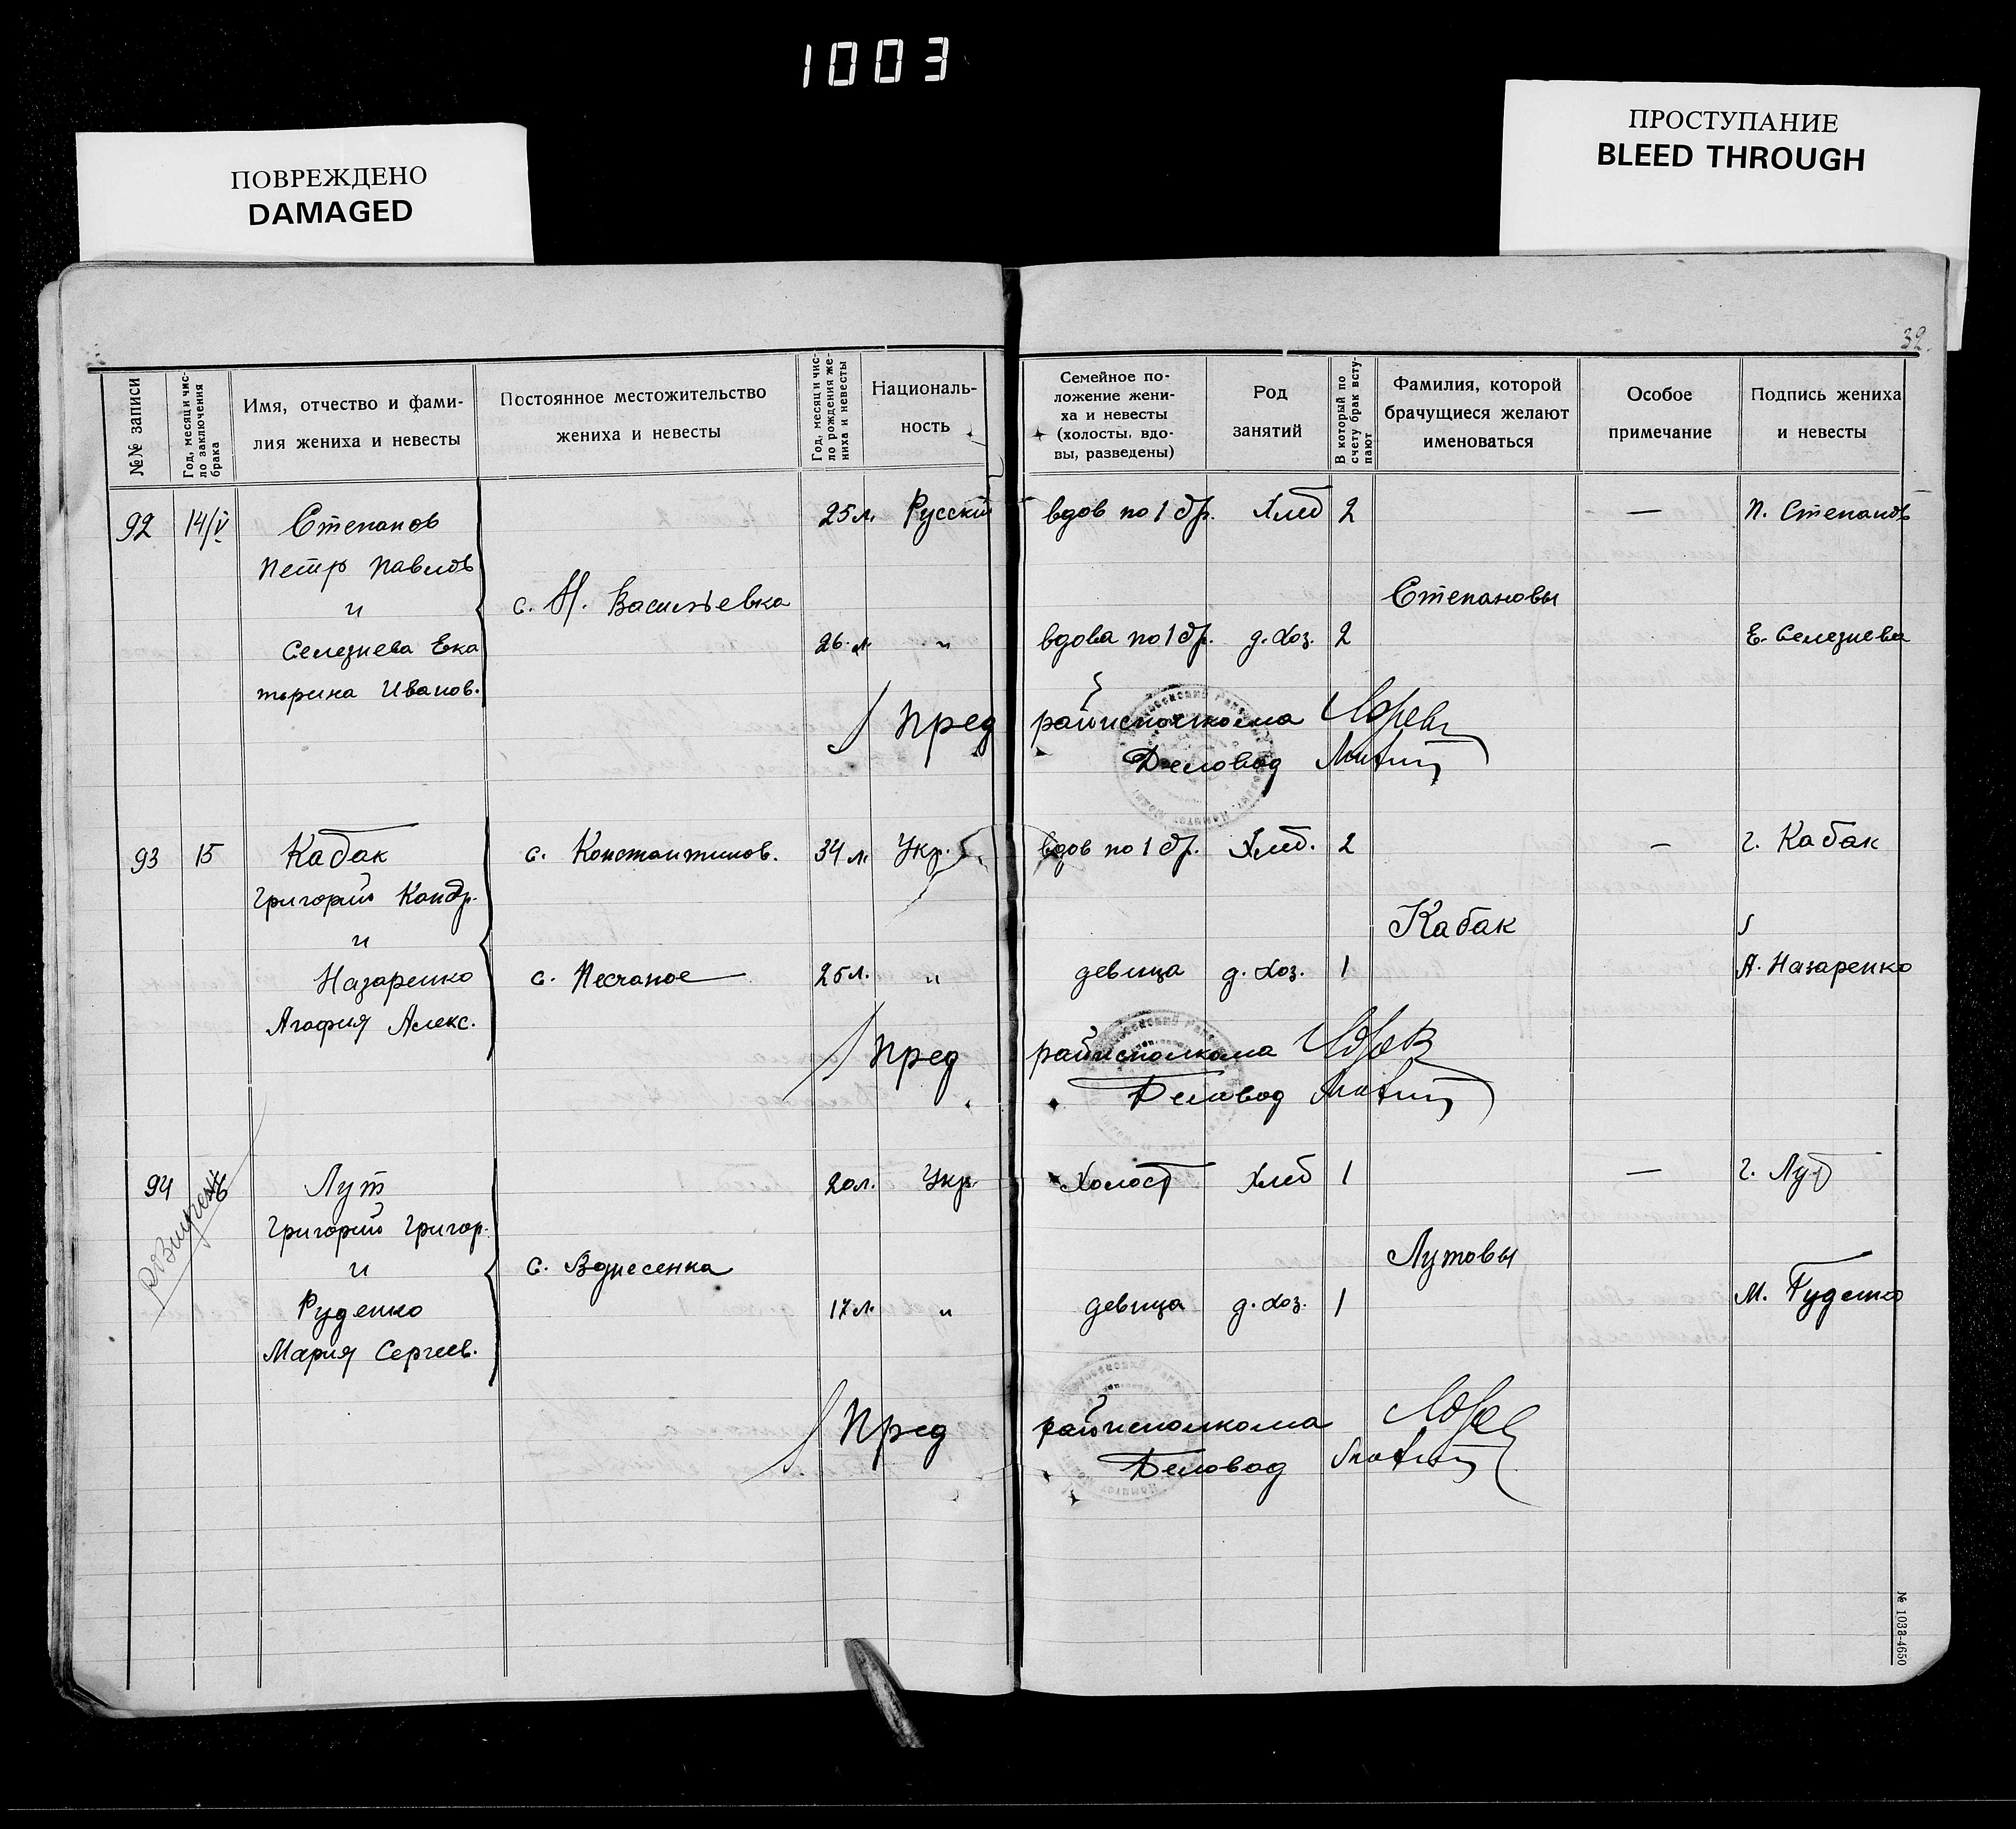 1003
ПОВРЕЖДЕНО
DAMAGED
ПРОСТУПАНИЕ
BLEED THROUGH
39
№№ записи
Год, месяц и чис-
ло заключения
брака
Имя, отчество и фами-
лия жениха и невесты
Постоянное местожительство
жениха и невесты
Год, месяц и чис-
ло рождения же-
ниха и невесты
Националь-
ность
Семейное по-
ложение жени-
ха и невесты
(холосты, вдо-
вы, разведены)
Род
занятий
В который по
счету брак всту-
пают
Фамилия, которой
брачущиеся желают
именоваться
Особое
примечание
Подпись жениха
и невесты
92 14/V Степанов 25 л. Русский вдов по 1 бр. Хлеб 2 — П. Степанов
Петр Павлов
и с. Н. Васильевка Степановы
Селезнева Ека 26 л. " вдова по 1 бр. д. хоз. 2 Е. Селезнева
терина Иванов.
Пред райисполкома
Деловод
93 15 Кабак с. Константинов. 34 л. Укр. вдов по 1 бр. Хлеб. 2 — Г. Кабак
Григорий Кондр.
и Кабак
Назаренко с. Песчаное 25 л. " девица д. хоз. 1 А. Назаренко
Агафия Алекс.
Пред райисполкома
Деловод
94 Лут 20 л. Укр. Холост Хлеб 1 — Г. Лут
Григорий Григор.
и с. Вознесенка Лутовы
Руденко 17 л. " девица д. хоз. 1 М. Руденко
Мария Сергеев.
Пред райисполкома
Деловод
№ 1033-4650